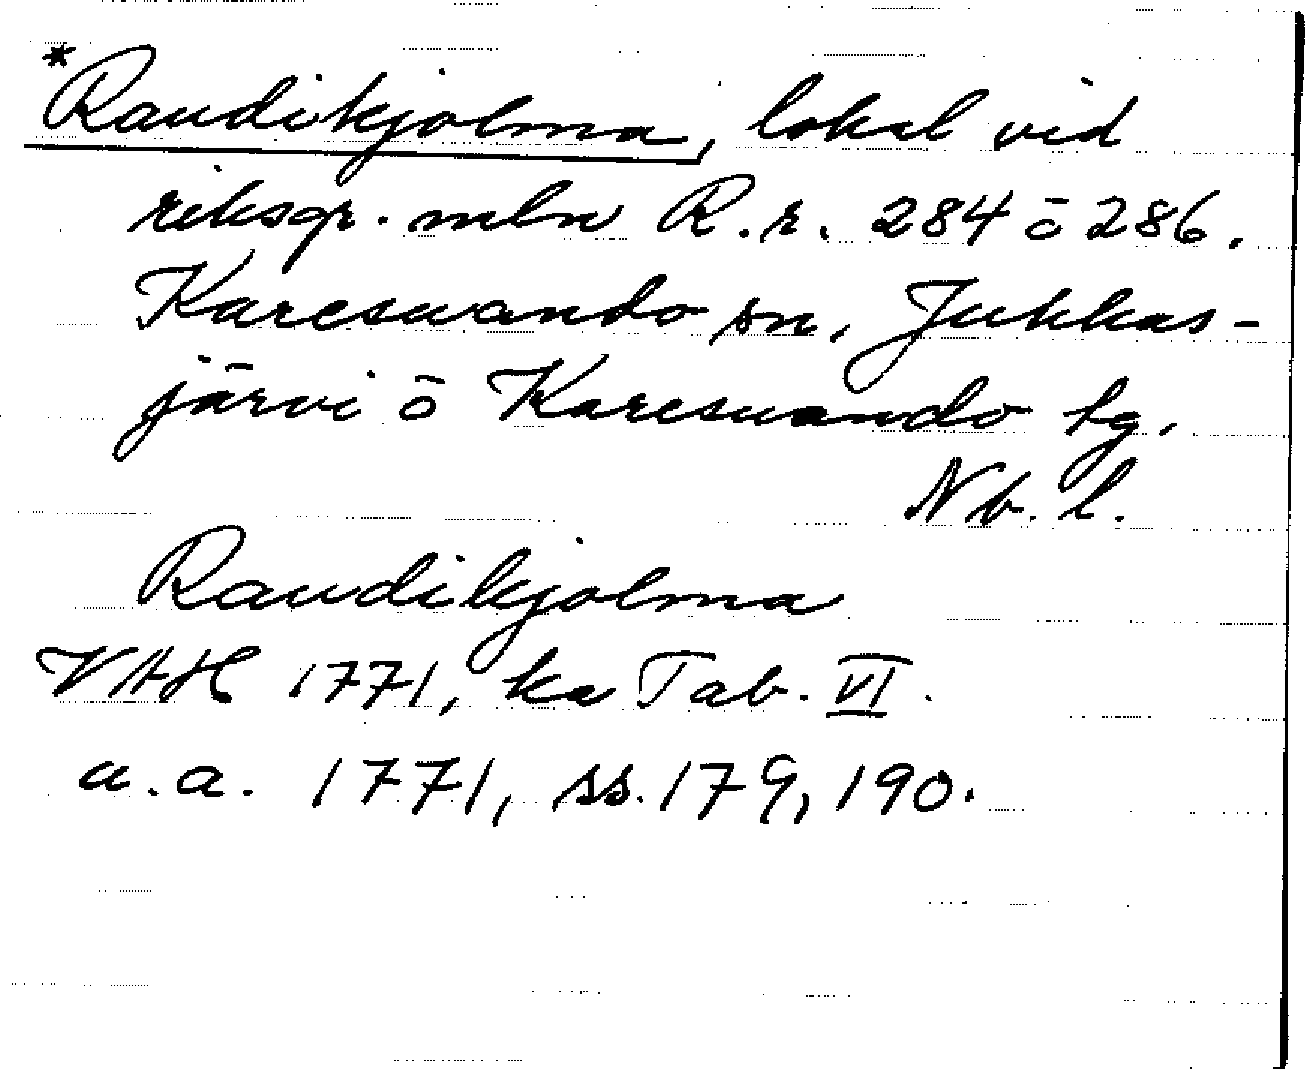 *Raudikjolma, lokal vid
riksgr. mln R.r. 284 ō 286.
Karesuando sn, Jukkas-
järvi ō Karesuando tg.
Nb. l.
Raudikjolma
VAH 1771, ka Tab. VI.
a.a. 1771, ss. 179, 190.